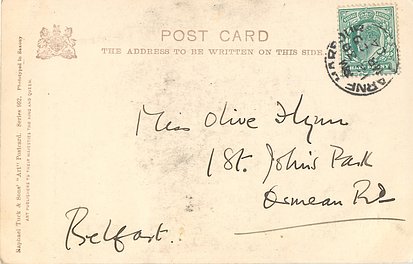 POST CARD
THE ADDRESS TO BE WRITTEN ON THIS SIDE.
Raphael Tuck & Sons' "Art" Postcard. Series 992. Phototyped in Saxony
ART PUBLISHERS TO THEIR MAJESTIES THE KING AND QUEEN.
LARNE HARBOUR
Miss Olive Flynn
1 St. John's Park
Osmean Rd
Belfast.